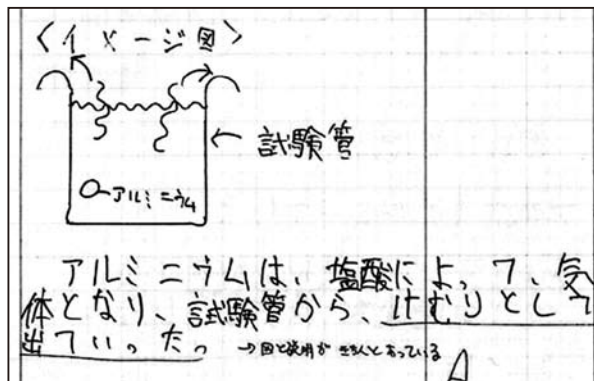 〈イメージ図〉
試験管
アルミニウム
アルミニウムは、塩酸によって、気
体となり、試験管から、けむりとして
出ていった。
→図と説明が きちんと あっている
A